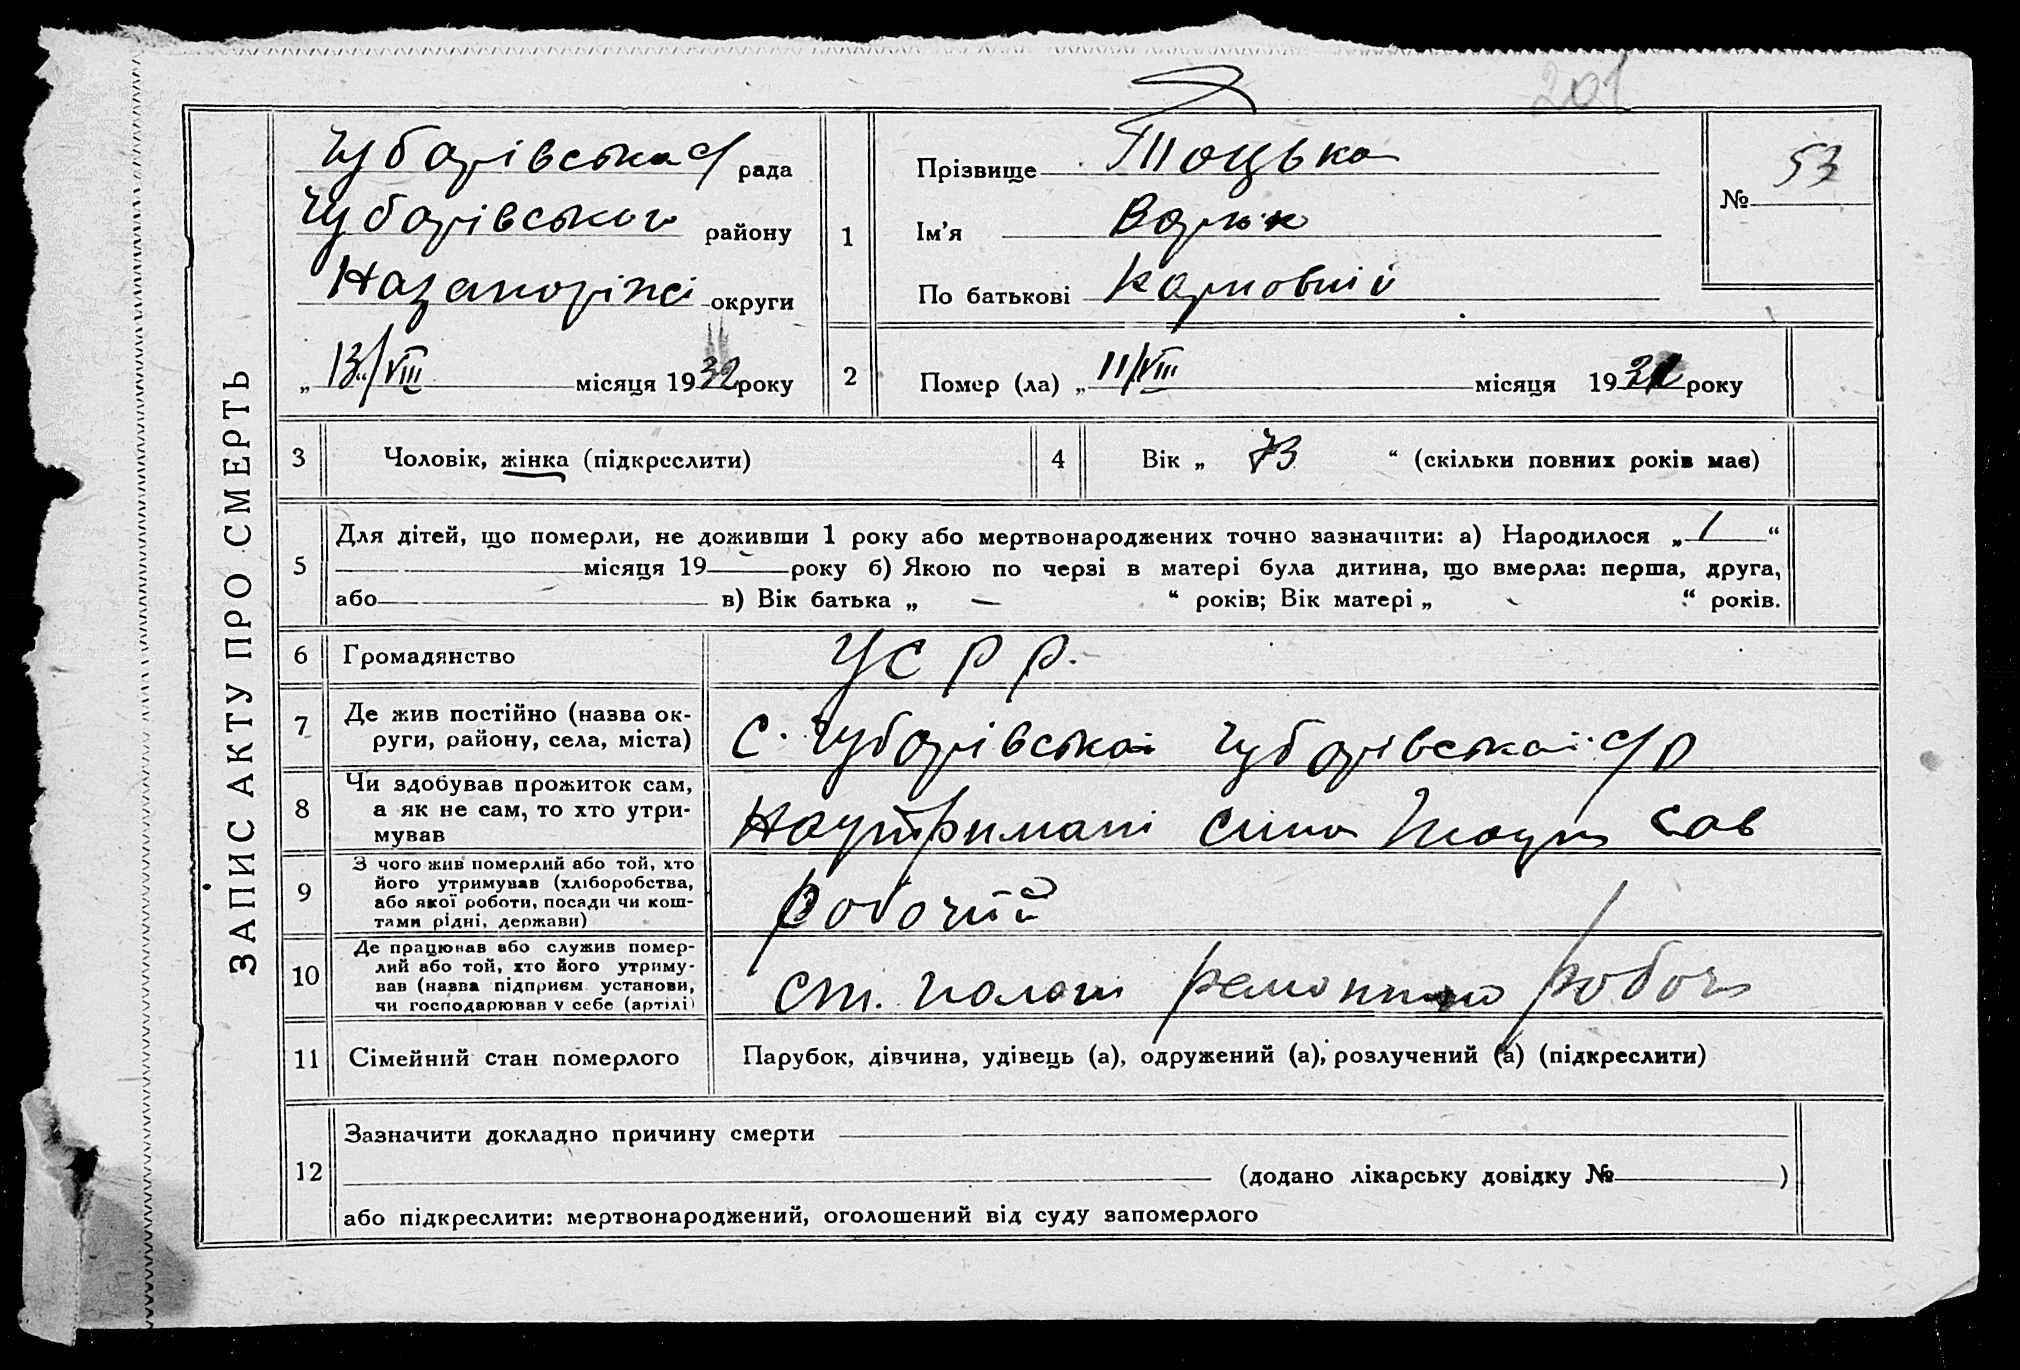 201
ЗАПИС АКТУ ПРО СМЕРТЬ
Чубарівська с/рада
Чубарівського району
Назапоріжі округи
„ 13 “/VIII місяця 1932 року
1
Прізвище Тоцька
Ім’я
По батькові
№ 53
2
Помер (ла) „ 11/VIII місяця 1932 року
3
Чоловік, жінка (підкреслити)
4
Вік „ 73 “ (скільки повних років має)
5
Для дітей, що померли, не доживши 1 року або мертвонароджених точно зазначити: а) Народилося „ / “
місяця 19 року б) Якою по черзі в матері була дитина, що вмерла: перша, друга,
або в) Вік батька „ — “ років; Вік матері „ “ років.
6
Громадянство
УСРР.
7
Де жив постійно (назва ок-
руги, району, села, міста)
С. Чубарівської Чубарівської с/р
8
Чи здобував прожиток сам,
а як не сам, то хто утри-
мував
На утримані сина сав
9
З чого жив померлий або той, хто
його утримував (хліборобства,
або якої роботи, посади чи кош-
тами рідні, держави)
робочий
10
Де працював або служив помер-
лий або той, хто його утриму-
вав (назва підприєм. установи,
чи господарював у себе (артілі)
ст. Пологи робоч
11
Сімейний стан померлого
Парубок, дівчина, удівець (а), одружений (а), розлучений (а) (підкреслити)
12
Зазначити докладно причину смерти
(додано лікарську довідку № )
або підкреслити: мертвонароджений, оголошений від суду запомерлого